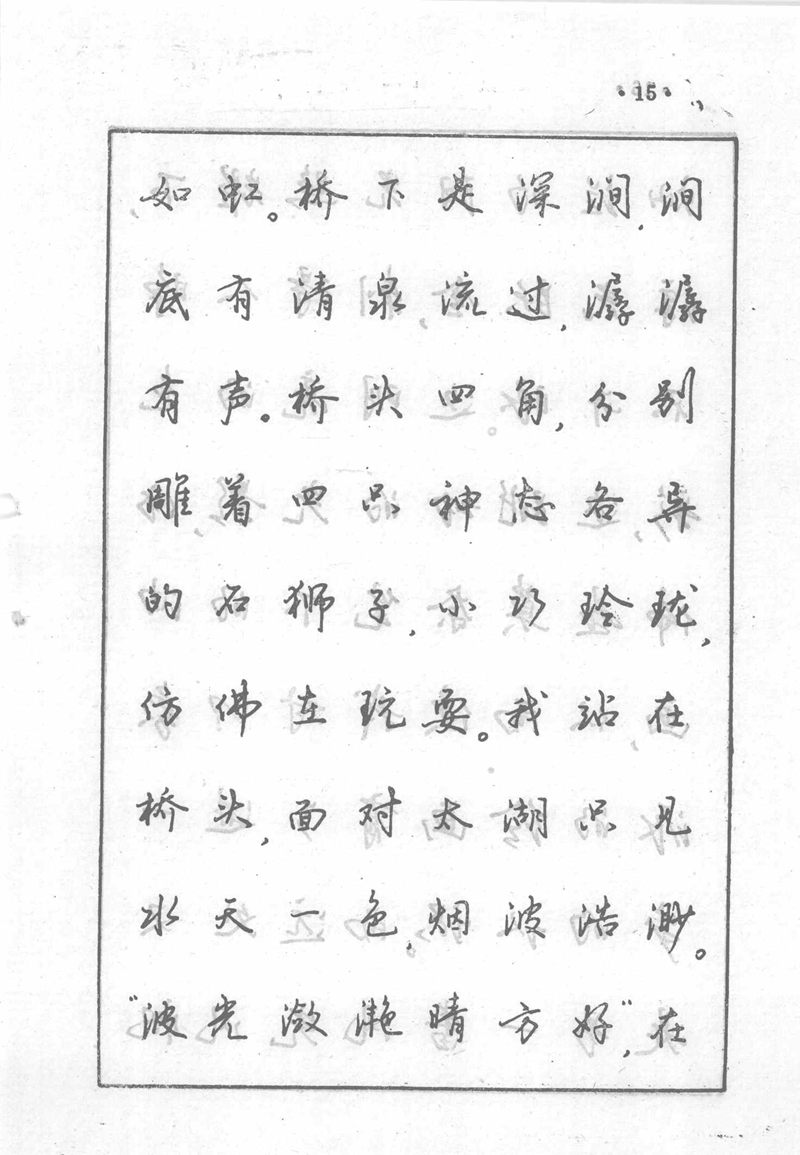 ·15·
如虹。桥下是深涧，涧
底有清泉流过，潺潺
有声。桥头四角，分别
雕着四只神态各异
的石狮子，小巧玲珑，
仿佛在玩耍。我站在
桥头，面对太湖只见
水天一色，烟波浩渺。
“波光潋滟晴方好”，在